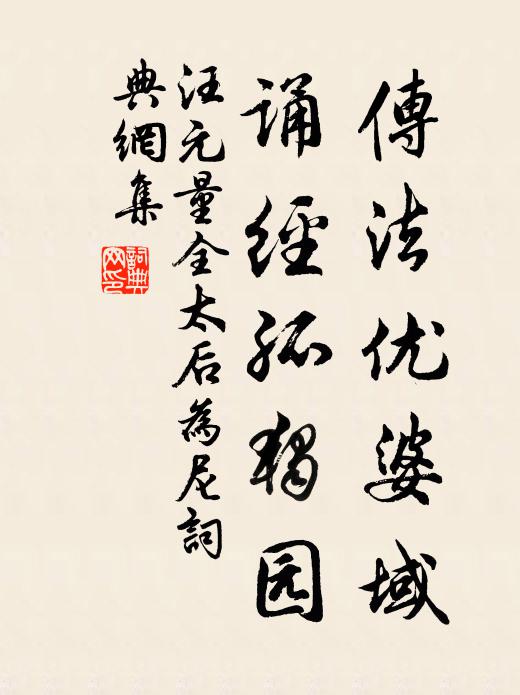 傳法优婆域
诵經孤獨园
汪元量全太后為尼詞
典網集
詞典网印